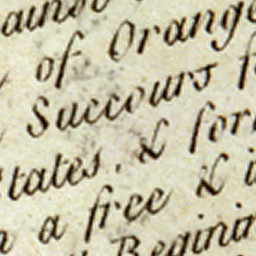 of Orange
Succours
States, & for
a free & i
Begini